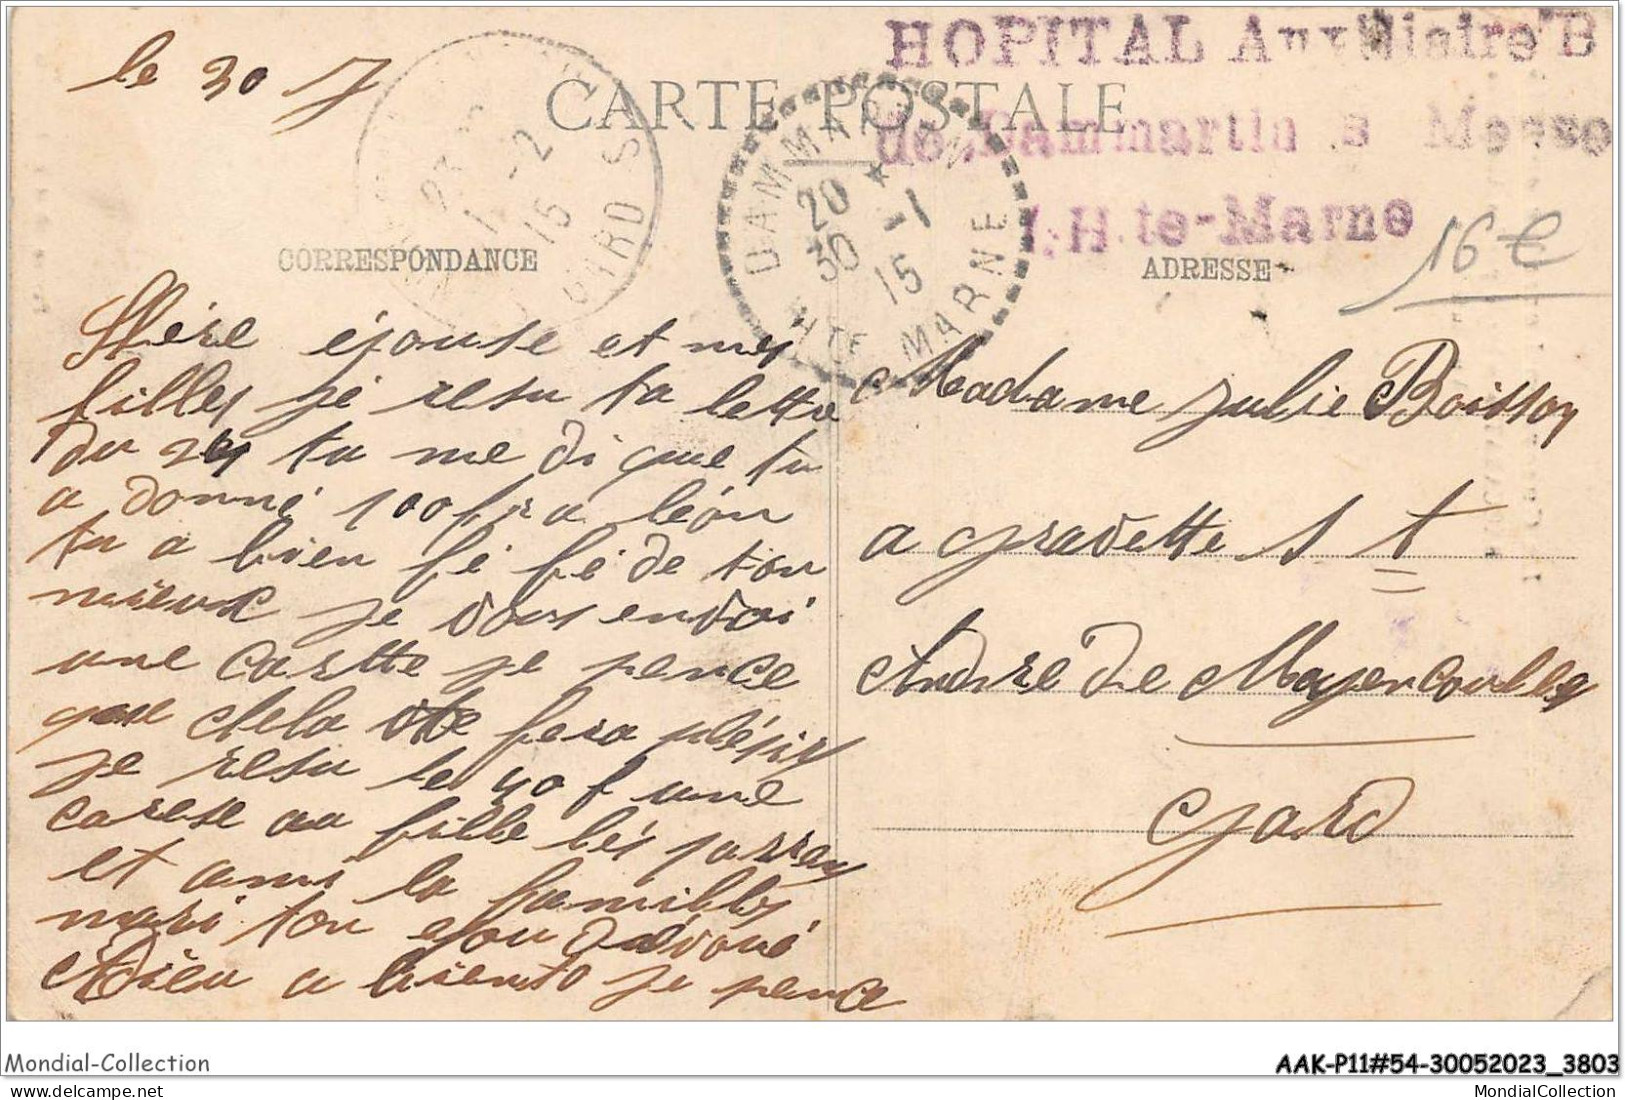 le 30 J
HOPITAL Auxiliaire B
CARTE POSTALE
de Dammartin s Meuse
Hte-Marne
DAMMARTIN
20 * 1
30 15
HTE MARNE
23
1 - 2
15
GARD
16€
CORRESPONDANCE
ADRESSE
Chère épouse et mes
filles jé resu ta lettre
du 24 tu me di que tu
a donné 100 fr a léon
tu a bien fé fé de ton
mieux je vous envoi
une cartte je pence
que chela te fera plésir
je resu le 40 f une
carese au fille lés parran
et ami la famille
mari ton epou dévoué
Adieu a biento je pence
Madame Julie Boisson
a gradette s t
Andre de Majencoulles
gard
Mondial-Collection
AAK-P11#54-30052023_3803
MondialCollection